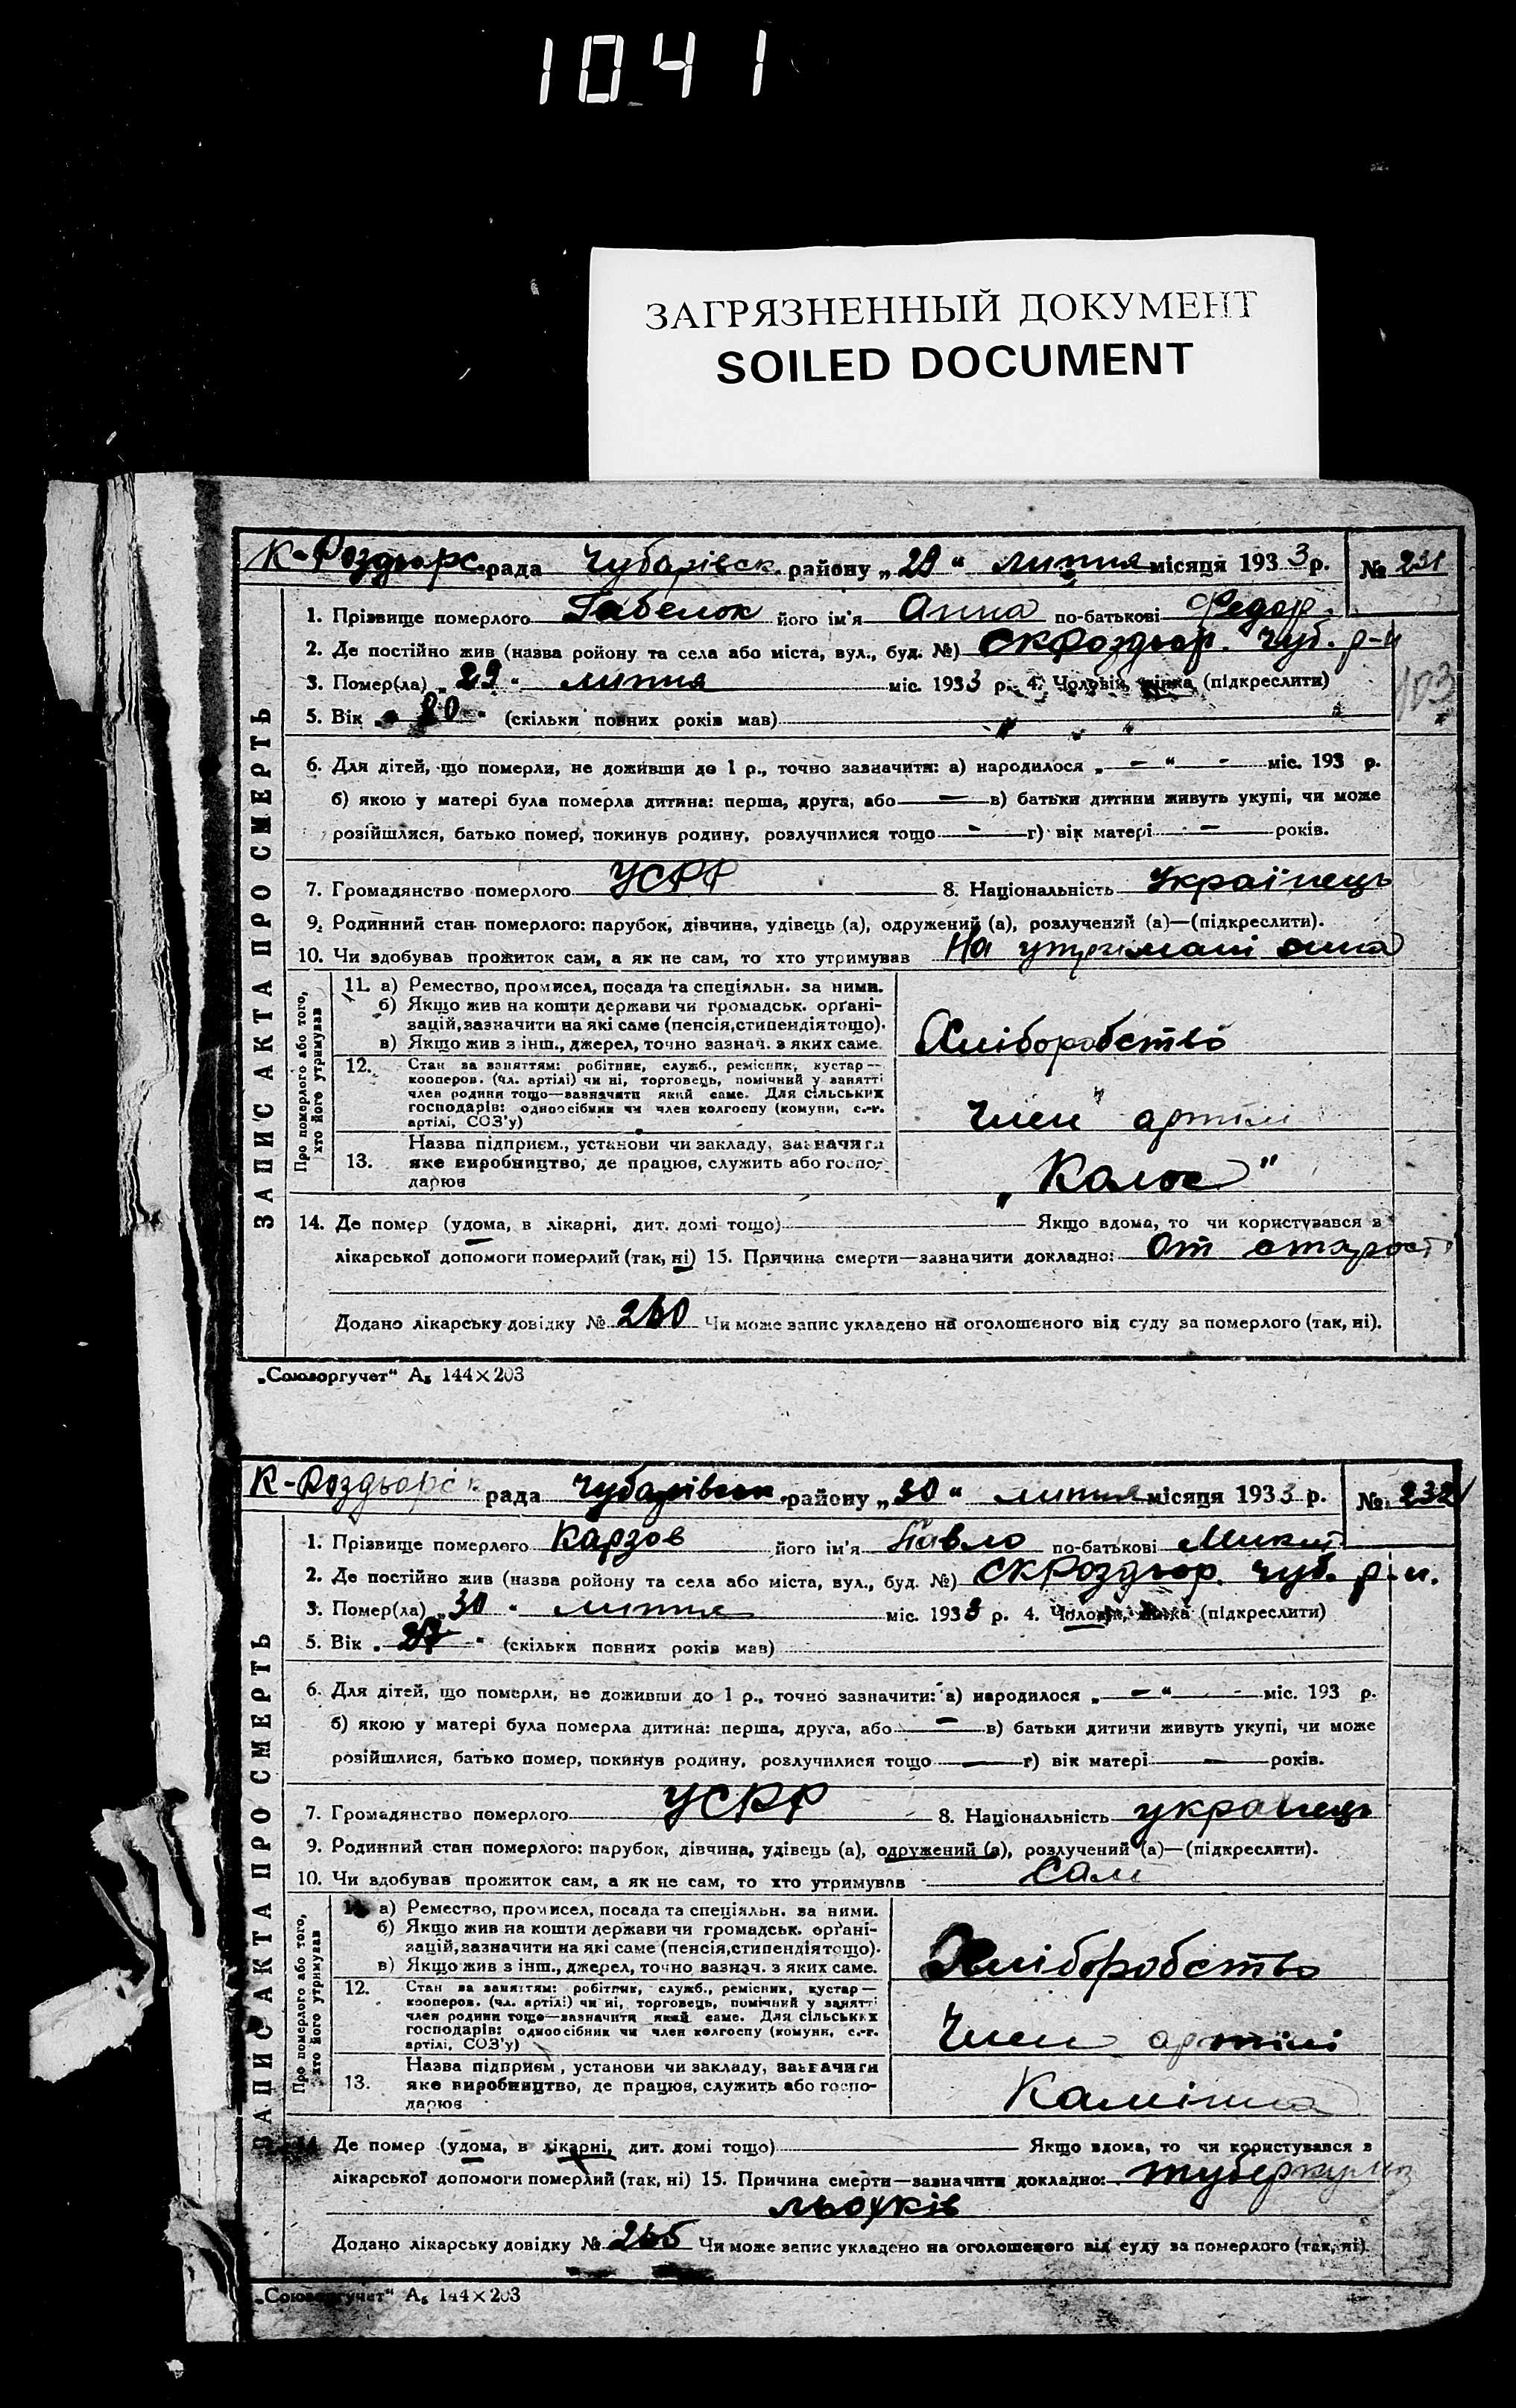 1041
ЗАГРЯЗНЕННЫЙ ДОКУМЕНТ
SOILED DOCUMENT
К-Роздорс. рада Чубарівск. району „29“ липня місяця 1933 р. № 231
ЗАПИС АКТА ПРО СМЕРТЬ
1. Прізвище померлого Габелок його ім'я Анна по-батькові Федор.
2. Де постійно жив (назва ройону та села або міста, вул., буд. №) СКРоздор. Чуб. р-н
103
3. Помер(ла) „29“ липня міс. 1933 р. 4. Чоловік, жінка (підкреслити)
5. Вік „80“ (скільки повних років мав)
6. Для дітей, що померли, не доживши до 1 р., точно зазначити: а) народилося „ — “ - міс. 193 р.
б) якою у матері була померла дитина: перша, друга, або — в) батьки дитини живуть укупі, чи може
розійшлися, батько помер, покинув родину, розлучилися тощо — г) вік матері — років.
7. Громадянство померлого УСРР 8. Національність Українець
9. Родинний стан померлого: парубок, дівчина, удівець (а), одружений (а), розлучений (а)—(підкреслити).
10. Чи здобував прожиток сам, а як не сам, то хто утримував На утримані сина
Про померлого або того, хто його утримував
11. а) Ремество, промисел, посада та спеціяльн. за ними.
б) Якщо жив на кошти держави чи громадськ. органі-
зацій, зазначити на які саме (пенсія, стипендія тощо).
в) Якщо жив з інш., джерел, точно зазнач. з яких саме.
Хліборобство
12. Стан за заняттям: робітник, служб., ремісник, кустар—
кооперов. (чл. артілі) чи ні, торговець, помічний у занятті
член родини тощо—зазначити який саме. Для сільських
господарів: одноосібник чи член колгоспу (комуни, с.-г.
артілі, СОЗ'у)
Член артілі
Назва підприєм., установи чи закладу, зазначити
13. яке виробництво, де працює, служить або госпо-
дарює
„Колос“
14. Де помер (удома, в лікарні, дит. домі тощо) Якщо вдома, то чи користувався з
лікарської допомоги померлий (так, ні) 15. Причина смерти—зазначити докладно: От старости
Додано лікарську довідку № 260 Чи може запис укладено на оголошеного від суду за померлого (так, ні).
„Союзоргучет“ А₅ 144×203
К-Роздорск рада Чубарівськ. району „30“ липня місяця 1933 р. № 232
ЗАПИС АКТА ПРО СМЕРТЬ
1. Прізвище померлого Карзов його ім'я Павло по-батькові Микит
2. Де постійно жив (назва ройону та села або міста, вул., буд. №) СКРоздор. Чуб. р-н.
3. Помер(ла) „30“ липня міс. 1933 р. 4. Чоловік, жінка (підкреслити)
5. Вік „27“ (скільки повних років мав)
6. Для дітей, що померли, не доживши до 1 р., точно зазначити: а) народилося „ — “ - міс. 193 р.
б) якою у матері була померла дитина: перша, друга, або — в) батьки дитини живуть укупі, чи може
розійшлися, батько помер, покинув родину, розлучилися тощо — г) вік матері — років.
7. Громадянство померлого УСРР 8. Національність українець
9. Родинний стан померлого: парубок, дівчина, удівець (а), одружений (а), розлучений (а)—(підкреслити).
10. Чи здобував прожиток сам, а як не сам, то хто утримував Сам
Про померлого або того, хто його утримував
а) Ремество, промисел, посада та спеціяльн. за ними.
б) Якщо жив на кошти держави чи громадськ. органі-
зацій, зазначити на які саме (пенсія, стипендія тощо).
в) Якщо жив з інш., джерел, точно зазнач. з яких саме.
Хліборобство
12. Стан за заняттям: робітник, служб., ремісник, кустар—
кооперов. (чл. артілі) чи ні, торговець, помічний у занятті
член родини тощо—зазначити який саме. Для сільських
господарів: одноосібник чи член колгоспу (комуни, с.-г.
артілі, СОЗ'у)
Член артілі
Назва підприєм., установи чи закладу, зазначити
13. яке виробництво, де працює, служить або госпо-
дарює
14. Де помер (удома, в лікарні, дит. домі тощо) Якщо вдома, то чи користувався з
лікарської допомоги померлий (так, ні) 15. Причина смерти—зазначити докладно: туберкульоз
льохків
Додано лікарську довідку № 265 Чи може запис укладено на оголошеного від суду за померлого (так, ні).
„Союзоргучет“ А₅ 144×203